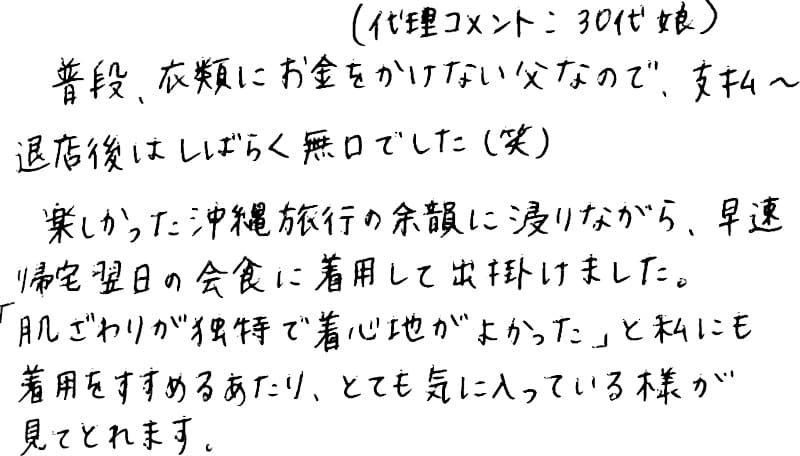 (代理コメント：30代娘)
普段、衣類にお金をかけない父なので、支払〜
退店後はしばらく無口でした(笑)
楽しかった沖縄旅行の余韻に浸りながら、早速
帰宅翌日の会食に着用して出掛けました。
「肌ざわりが独特で着心地がよかった」と私にも
着用をすすめるあたり、とても気に入っている様が
見てとれます。